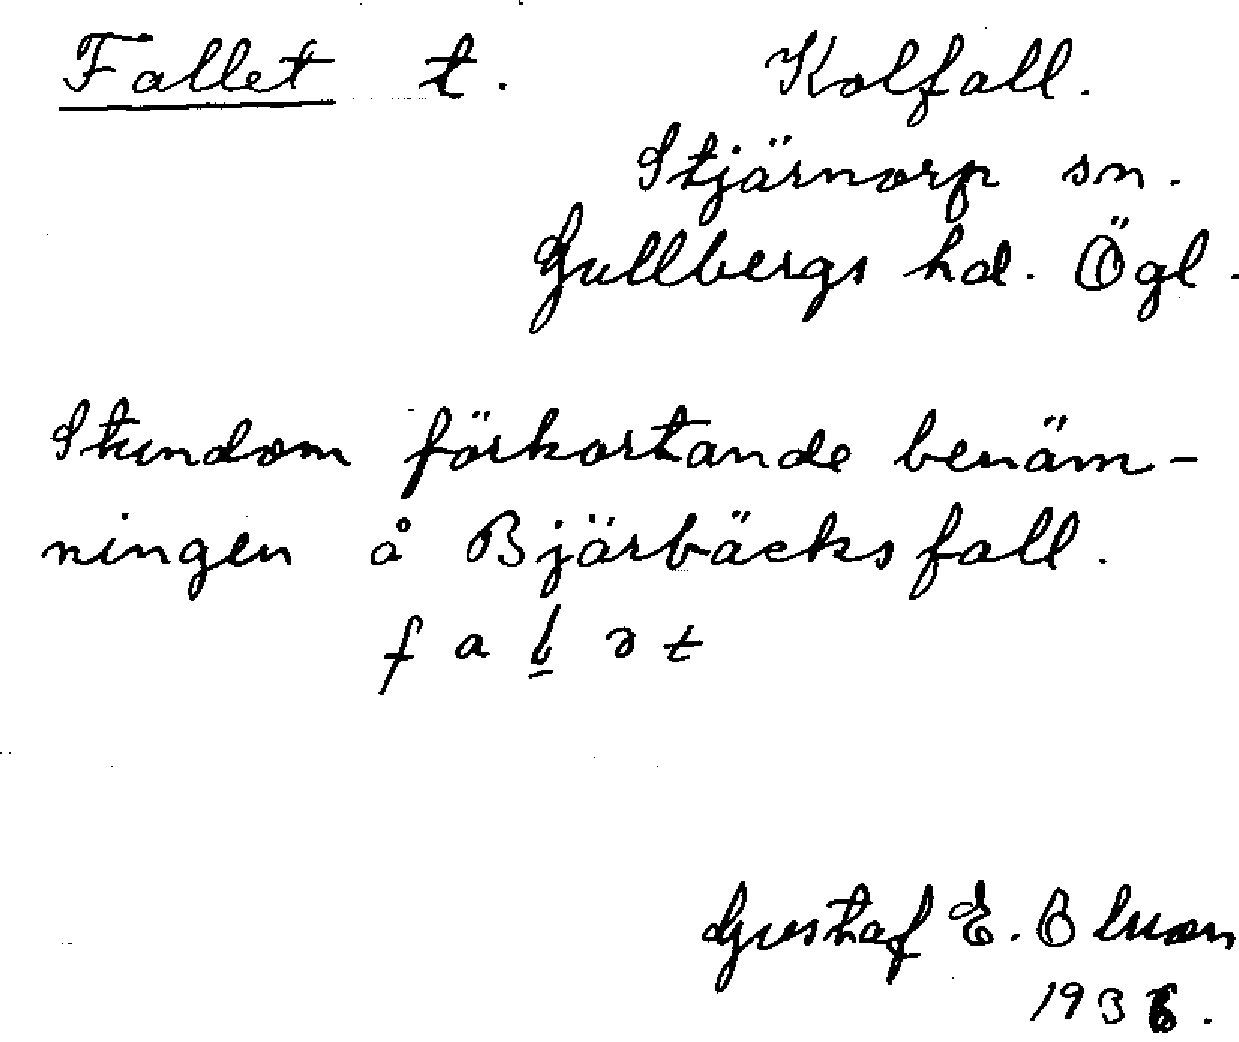 Fallet t. Kolfall.
Stjärnorp sn.
Gullbergs hd. Ögl.
Stundom förkortande benäm-
ningen å Bjärbäcksfall.
f a l̲ ə t
Gustaf E. Olsson
1936.